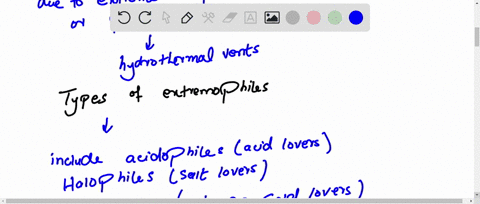 due to
or
hydrothermal vents
Types of extremophiles
include acidophiles (acid lovers)
Holophiles (salt lovers)
lovers)